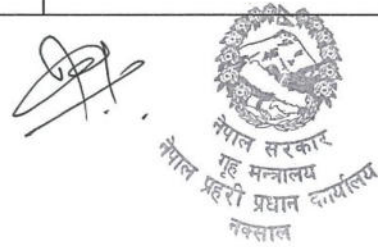 नेपाल सरकार
गृह मन्त्रालय
नेपाल प्रहरी प्रधान कार्यालय
नक्साल